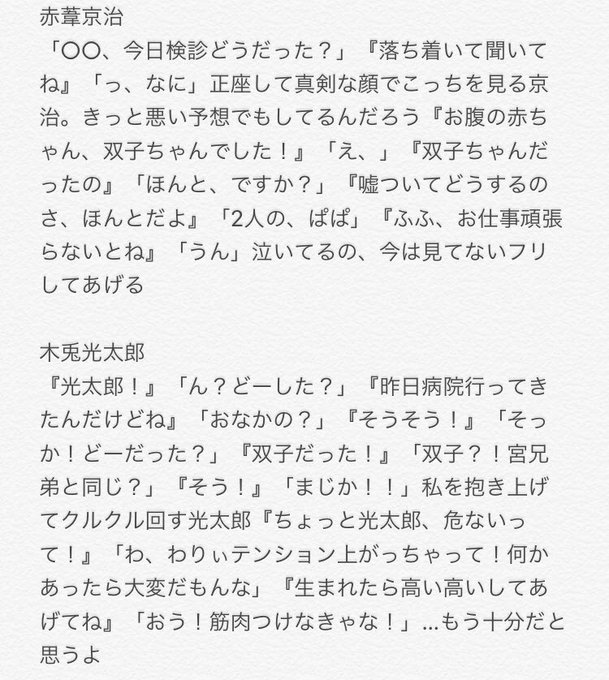 赤葦京治
「〇〇、今日検診どうだった？」『落ち着いて聞いて
ね』「っ、なに」正座して真剣な顔でこっちを見る京
治。きっと悪い予想でもしてるんだろう『お腹の赤ち
ゃん、双子ちゃんでした！』「え、」『双子ちゃんだ
ったの』「ほんと、ですか？」『嘘ついてどうするの
さ、ほんとだよ』「2人の、ぱぱ」『ふふ、お仕事頑張
らないとね』「うん」泣いてるの、今は見てないフリ
してあげる
木兎光太郎
『光太郎！』「ん？どーした？」『昨日病院行ってき
たんだけどね』「おなかの？」『そうそう！』「そっ
か！どーだった？」『双子だった！』「双子？！宮兄
弟と同じ？」『そう！』「まじか！！」私を抱き上げ
てクルクル回す光太郎『ちょっと光太郎、危ないっ
て！』「わ、わりぃテンション上がっちゃって！何か
あったら大変だもんな」『生まれたら高い高いしてあ
げてね』「おう！筋肉つけなきゃな！」…もう十分だと
思うよ